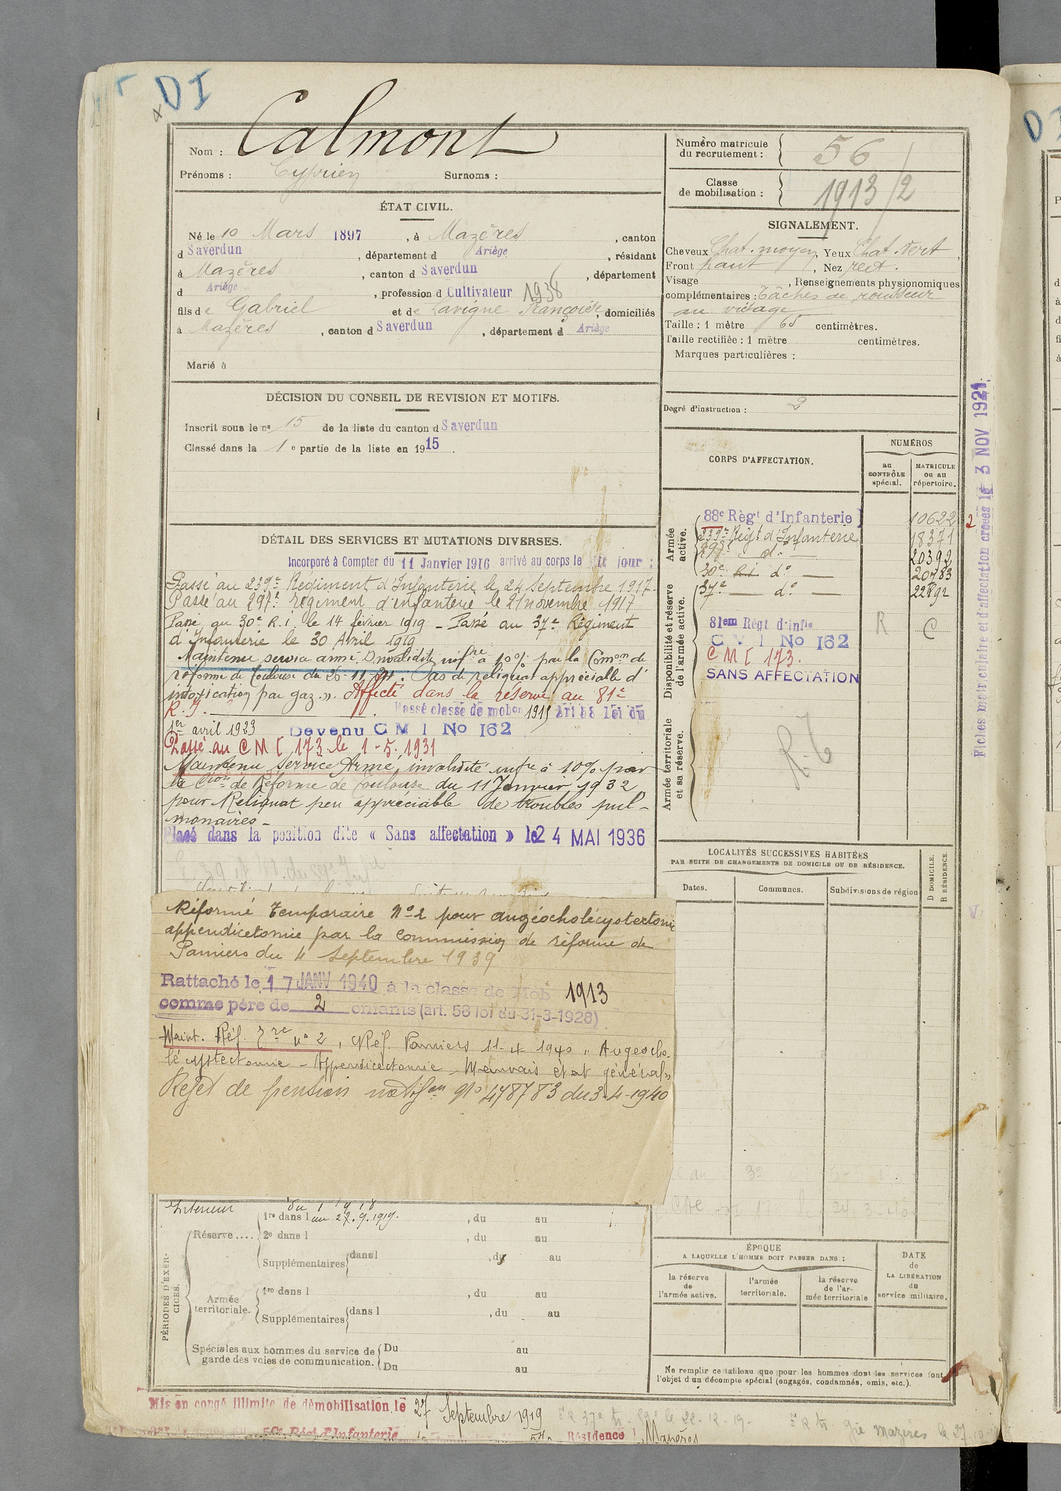 DI
Nom : Calmont
Prénoms : Cyprien Surnoms :
Numéro matricule du recrutement : 56
Classe de mobilisation : 1913/2
ÉTAT CIVIL.
Né le 10 Mars 1897, à Mazères, canton
d Saverdun, département d Ariège, résidant
à Mazères, canton d Saverdun, département
d Ariège, profession d Cultivateur 1938
fils de Gabriel et de Lavigne Françoise, domiciliés
à Mazères, canton d Saverdun, département d Ariège
Marié à
SIGNALEMENT.
Cheveux Chat. moyen, Yeux Chat. vert
Front haut, Nez rect.
Visage , Renseignements physionomiques
complémentaires : Tâches de rousseur
au visage
Taille : 1 mètre 65 centimètres.
Taille rectifiée : 1 mètre centimètres.
Marques particulières :
Degré d'instruction : 2
DÉCISION DU CONSEIL DE REVISION ET MOTIFS.
Inscrit sous le no 15 de la liste du canton d Saverdun
Classé dans la 1e partie de la liste en 1915
Fiches matriculaire et d'affectation créées le 3 NOV 1921.
DÉTAIL DES SERVICES ET MUTATIONS DIVERSES.
Incorporé à Compter du 11 Janvier 1916 arrivé au corps le dit jour :
Passé au 239e Régiment d'Infanterie le 24 Septembre 1917.
Passé au 297e régiment d'infanterie le 21 novembre 1917
Passé au 30e R.I. le 14 février 1919 - Passé au 37e Régiment
d'Infanterie le 30 Avril 1919
Maintenu service armé. Invalidité infre à 10% par la Comon de
réforme de Toulouse du : Pas de reliquat appréciable d'
intoxication par gaz ". Affecté dans la réserve au 81e
R.I. Passé classe de mobon 1915 Art 58 loi du
1er avril 1923 Devenu C M I No 162
Passé au C M I 173 le 1-5-1931
Maintenu Service Armé, invalidité infre à 10% par
la Cion de Réforme de Toulouse du 11 Janvier 1932
pour Reliquat peu appréciable de troubles pul-
monaires -
Placé dans la position dite « Sans affectation » le 24 MAI 1936
CORPS D'AFFECTATION.
NUMÉROS
au CONTRÔLE spécial.
MATRICULE ou au répertoire.
Armée active.
88e Régt d'Infanterie 10622
239e Régt d'Infanterie 18371
297e do 20392
30e R.I. do 20783
37e do 22892
Disponibilité et réserve de l'armée active.
81em Régt d'Infie
C M I No 162 R C
C M I 173.
SANS AFFECTATION
Armée territoriale et sa réserve.
Réformé Temporaire No 2 pour angéocholécystectomie
appendicetomie par la Commission de réforme de
Pamiers du 4 Septembre 1939
Rattaché le 17 JANV 1940 à la classe de Mob 1913
comme père de 2 enfants (art. 58 loi du 31-3-1928)
Maint. Réf. Tre no 2, CRéf. Pamiers 11-4 1940 " Angeocho-
lécystectomie - Appendicectomie - Mauvais état général "
Rejet de pension notifon No 478783 du 3-4-1940
LOCALITÉS SUCCESSIVES HABITÉES
PAR SUITE DE CHANGEMENTS DE DOMICILE OU DE RÉSIDENCE.
Dates. Communes. Subdivisions de région D DOMICILE. R RÉSIDENCE
Intérieur
PÉRIODES D'EXERCICES.
Réserve .... 1re dans l au 27.9.1919. , du au
2e dans l , du au
Supplémentaires dans l , du au
Armée territoriale. 1re dans l , du au
Supplémentaires dans l , du au
Spéciales aux hommes du service de garde des voies de communication. Du au
Du au
ÉPOQUE
A LAQUELLE L'HOMME DOIT PASSER DANS :
la réserve de l'armée active.
l'armée territoriale.
la réserve de l'armée territoriale
DATE de LA LIBÉRATION du service militaire.
Ne remplir ce tableau que pour les hommes dont les services font
l'objet d'un décompte spécial (engagés, condamnés, omis, etc.).
Mis en congé illimité de démobilisation le 27 Septembre 1919
Régt d'Infanterie Résidence Mazères